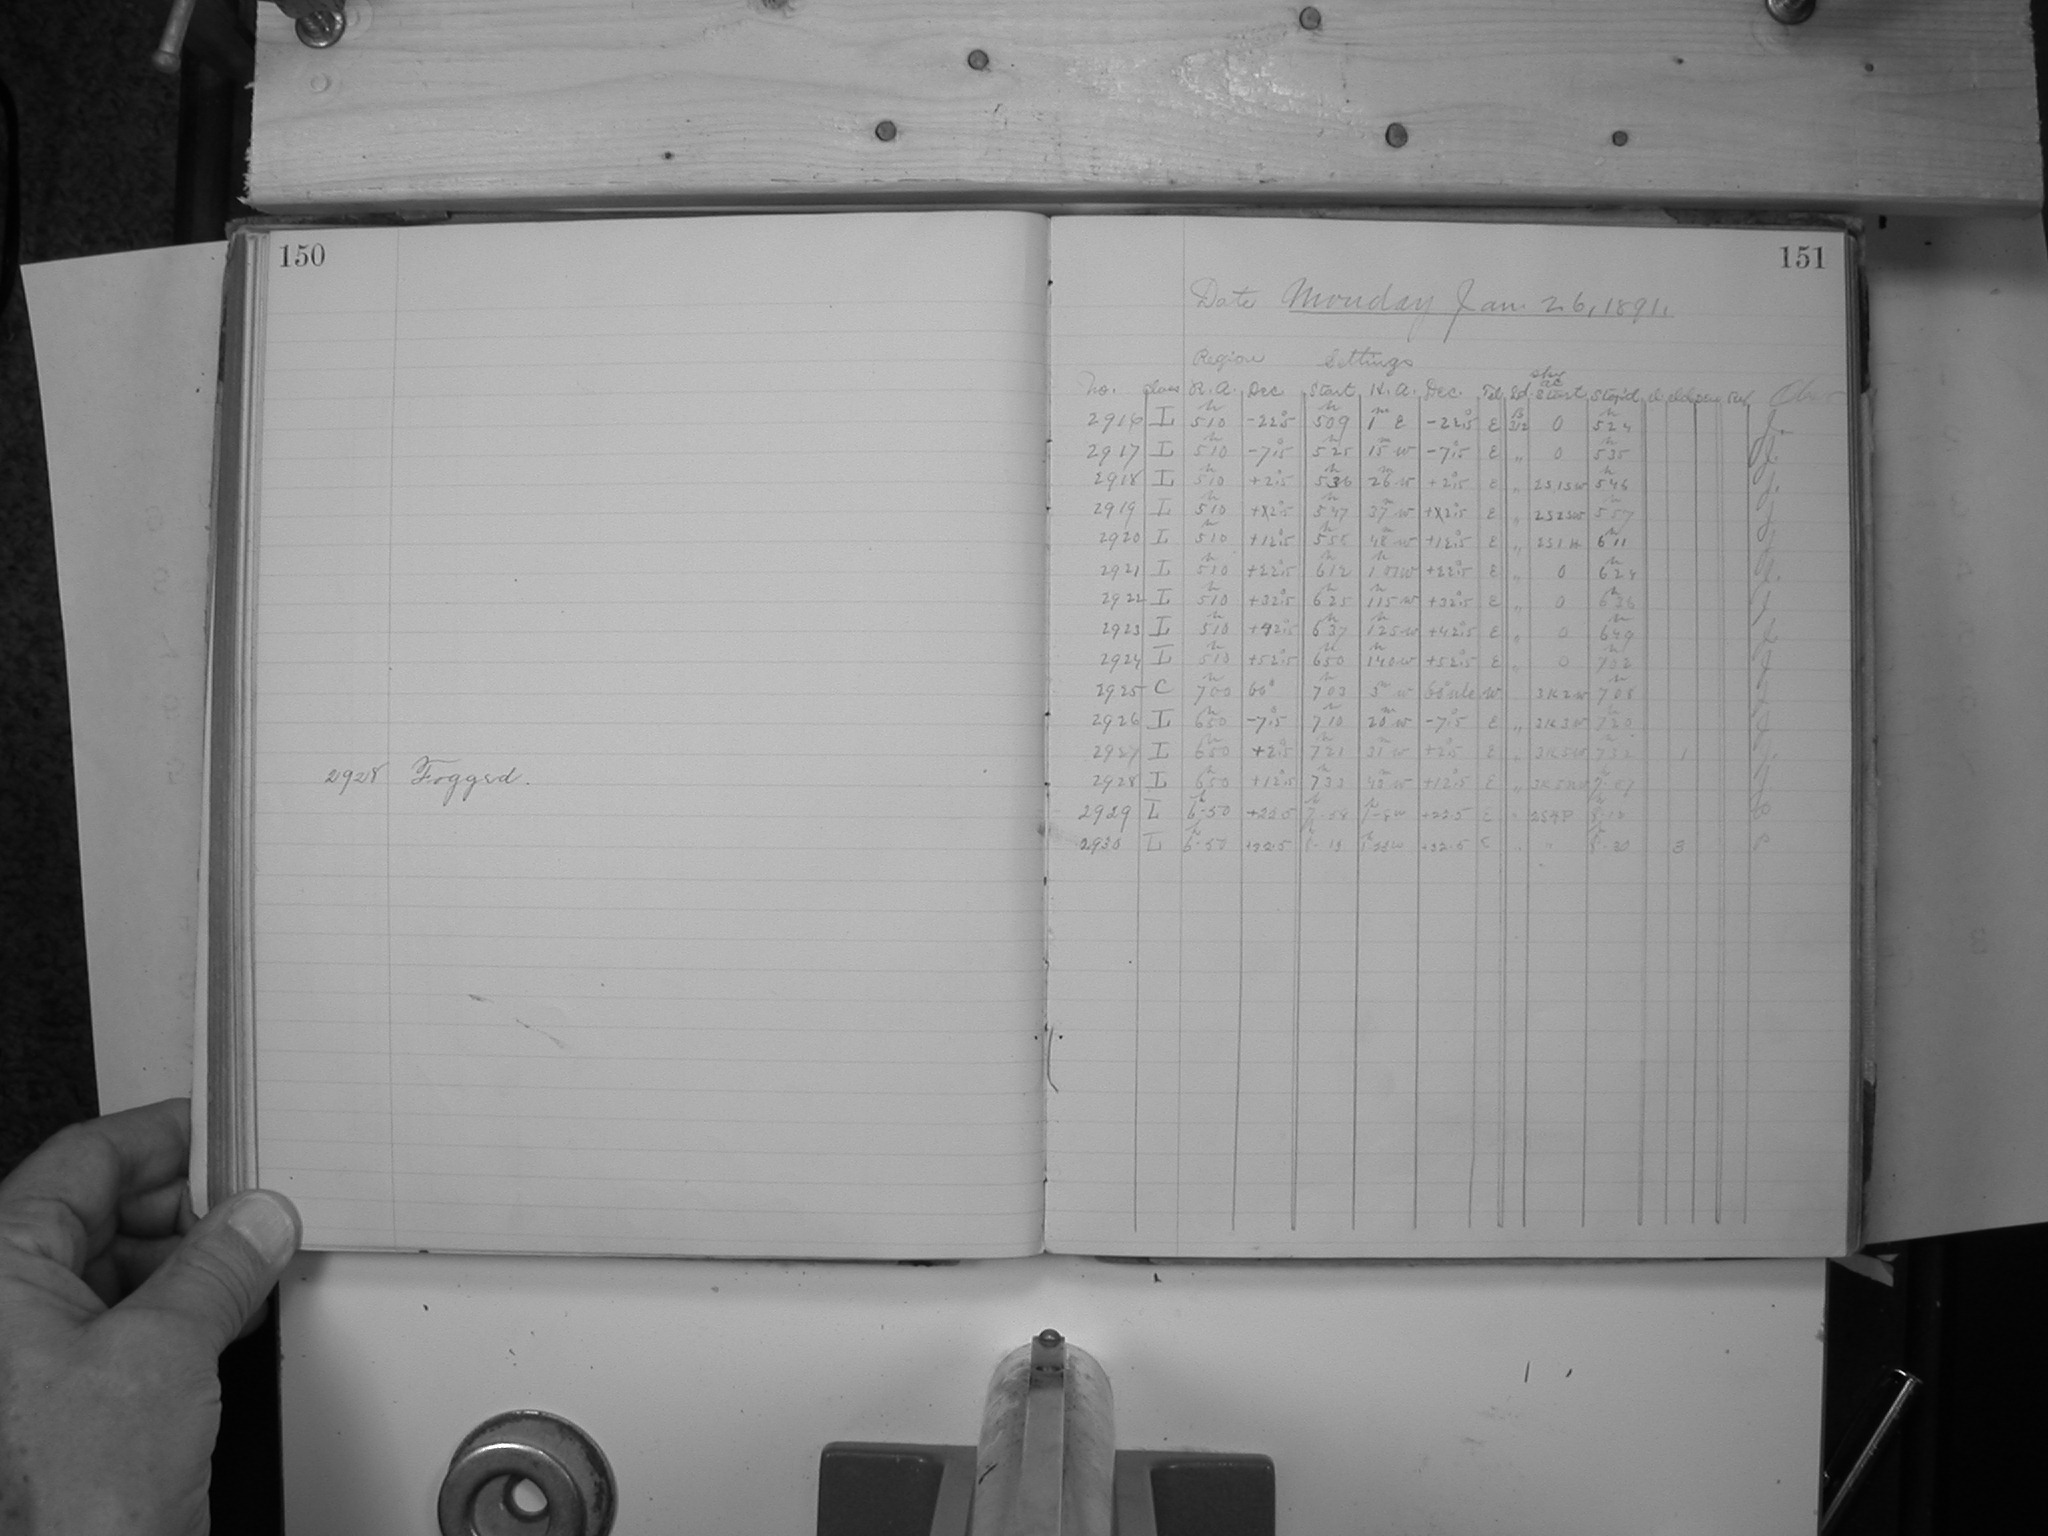 150
2928 Fogged.
151
Date Monday Jan. 26, 1891.
Region Settings
No. Class R.A. Dec. Start H.A. Dec. Start Stop'd
2916 I 5 10 -22.5 5 09 1 E -22.5 E 0 5 24
2917 I 5 10 -7.5 5 25 15 w -7.5 E " 0 5 35
2918 I 5 10 +2.5 5 36 26 w +2.5 E " 5 46
2919 I 5 10 5 47 37 w E " 5 57
2920 I 5 10 +12.5 48 w +12.5 E " 6 11
2921 I 5 10 +22.5 6 12 w +22.5 E " 0
2922 I 5 10 +32.5 6 25 1 15 w +32.5 E " 0 6 36
2923 I 5 10 +42.5 6 37 1 25 w +42.5 E " 0 6 49
2924 I 5 10 +52.5 6 50 1 40 w +52.5 E " 0 7 02
2925 C 7 00 60° 7 03 3 w w 7 08
2926 I 6 50 -7.5 7 10 20 w -7.5 E " 7 20
2927 I 6 50 +2.5 7 21 31 w +2.5 E " 7 32 1
2928 I 6 50 +12.5 7 33 43 w +12.5 E "
2929 I 6-50 +22.5 7-58 +22.5 E "
2930 I 6-50 +32.5 +32.5 E " " 8-30 3